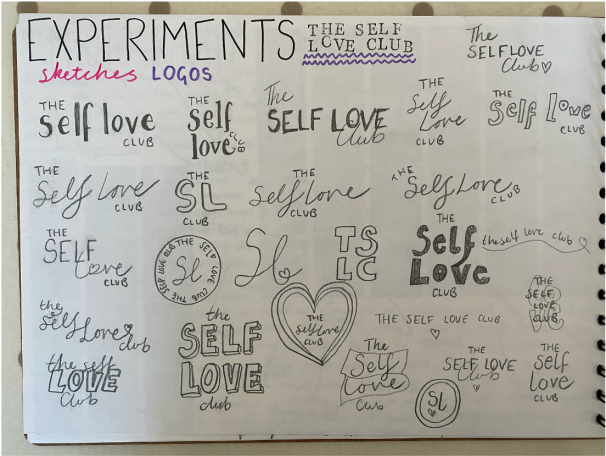 EXPERIMENTS
THE SELF
LOVE CLUB
sketches LOGOS
The
SELF LOVE
Club
THE
self love
CLUB
THE
self
love
CLUB
The
SELF LOVE
Club
THE
Self
Love
CLUB
THE
Self love
CLUB
THE
Self Love
CLUB
THE
SL
CLUB
THE
Self Love
CLUB
THE
Self Love
CLUB
THE
SELF
Love
CLUB
THE SELF LOVE CLUB THE SELF LOVE CLUB
Sl
Sl
TS
LC
THE
Self
Love
CLUB
the self love club
the
Self Love
club
the
SELF
LOVE
club
THE
Self Love
CLUB
THE SELF LOVE CLUB
THE
SELF
LOVE
CLUB
the self
LOVE
Club
The
Self
Love
Club
SL
THE
SELF LOVE
Club
THE
Self
love
CLUB